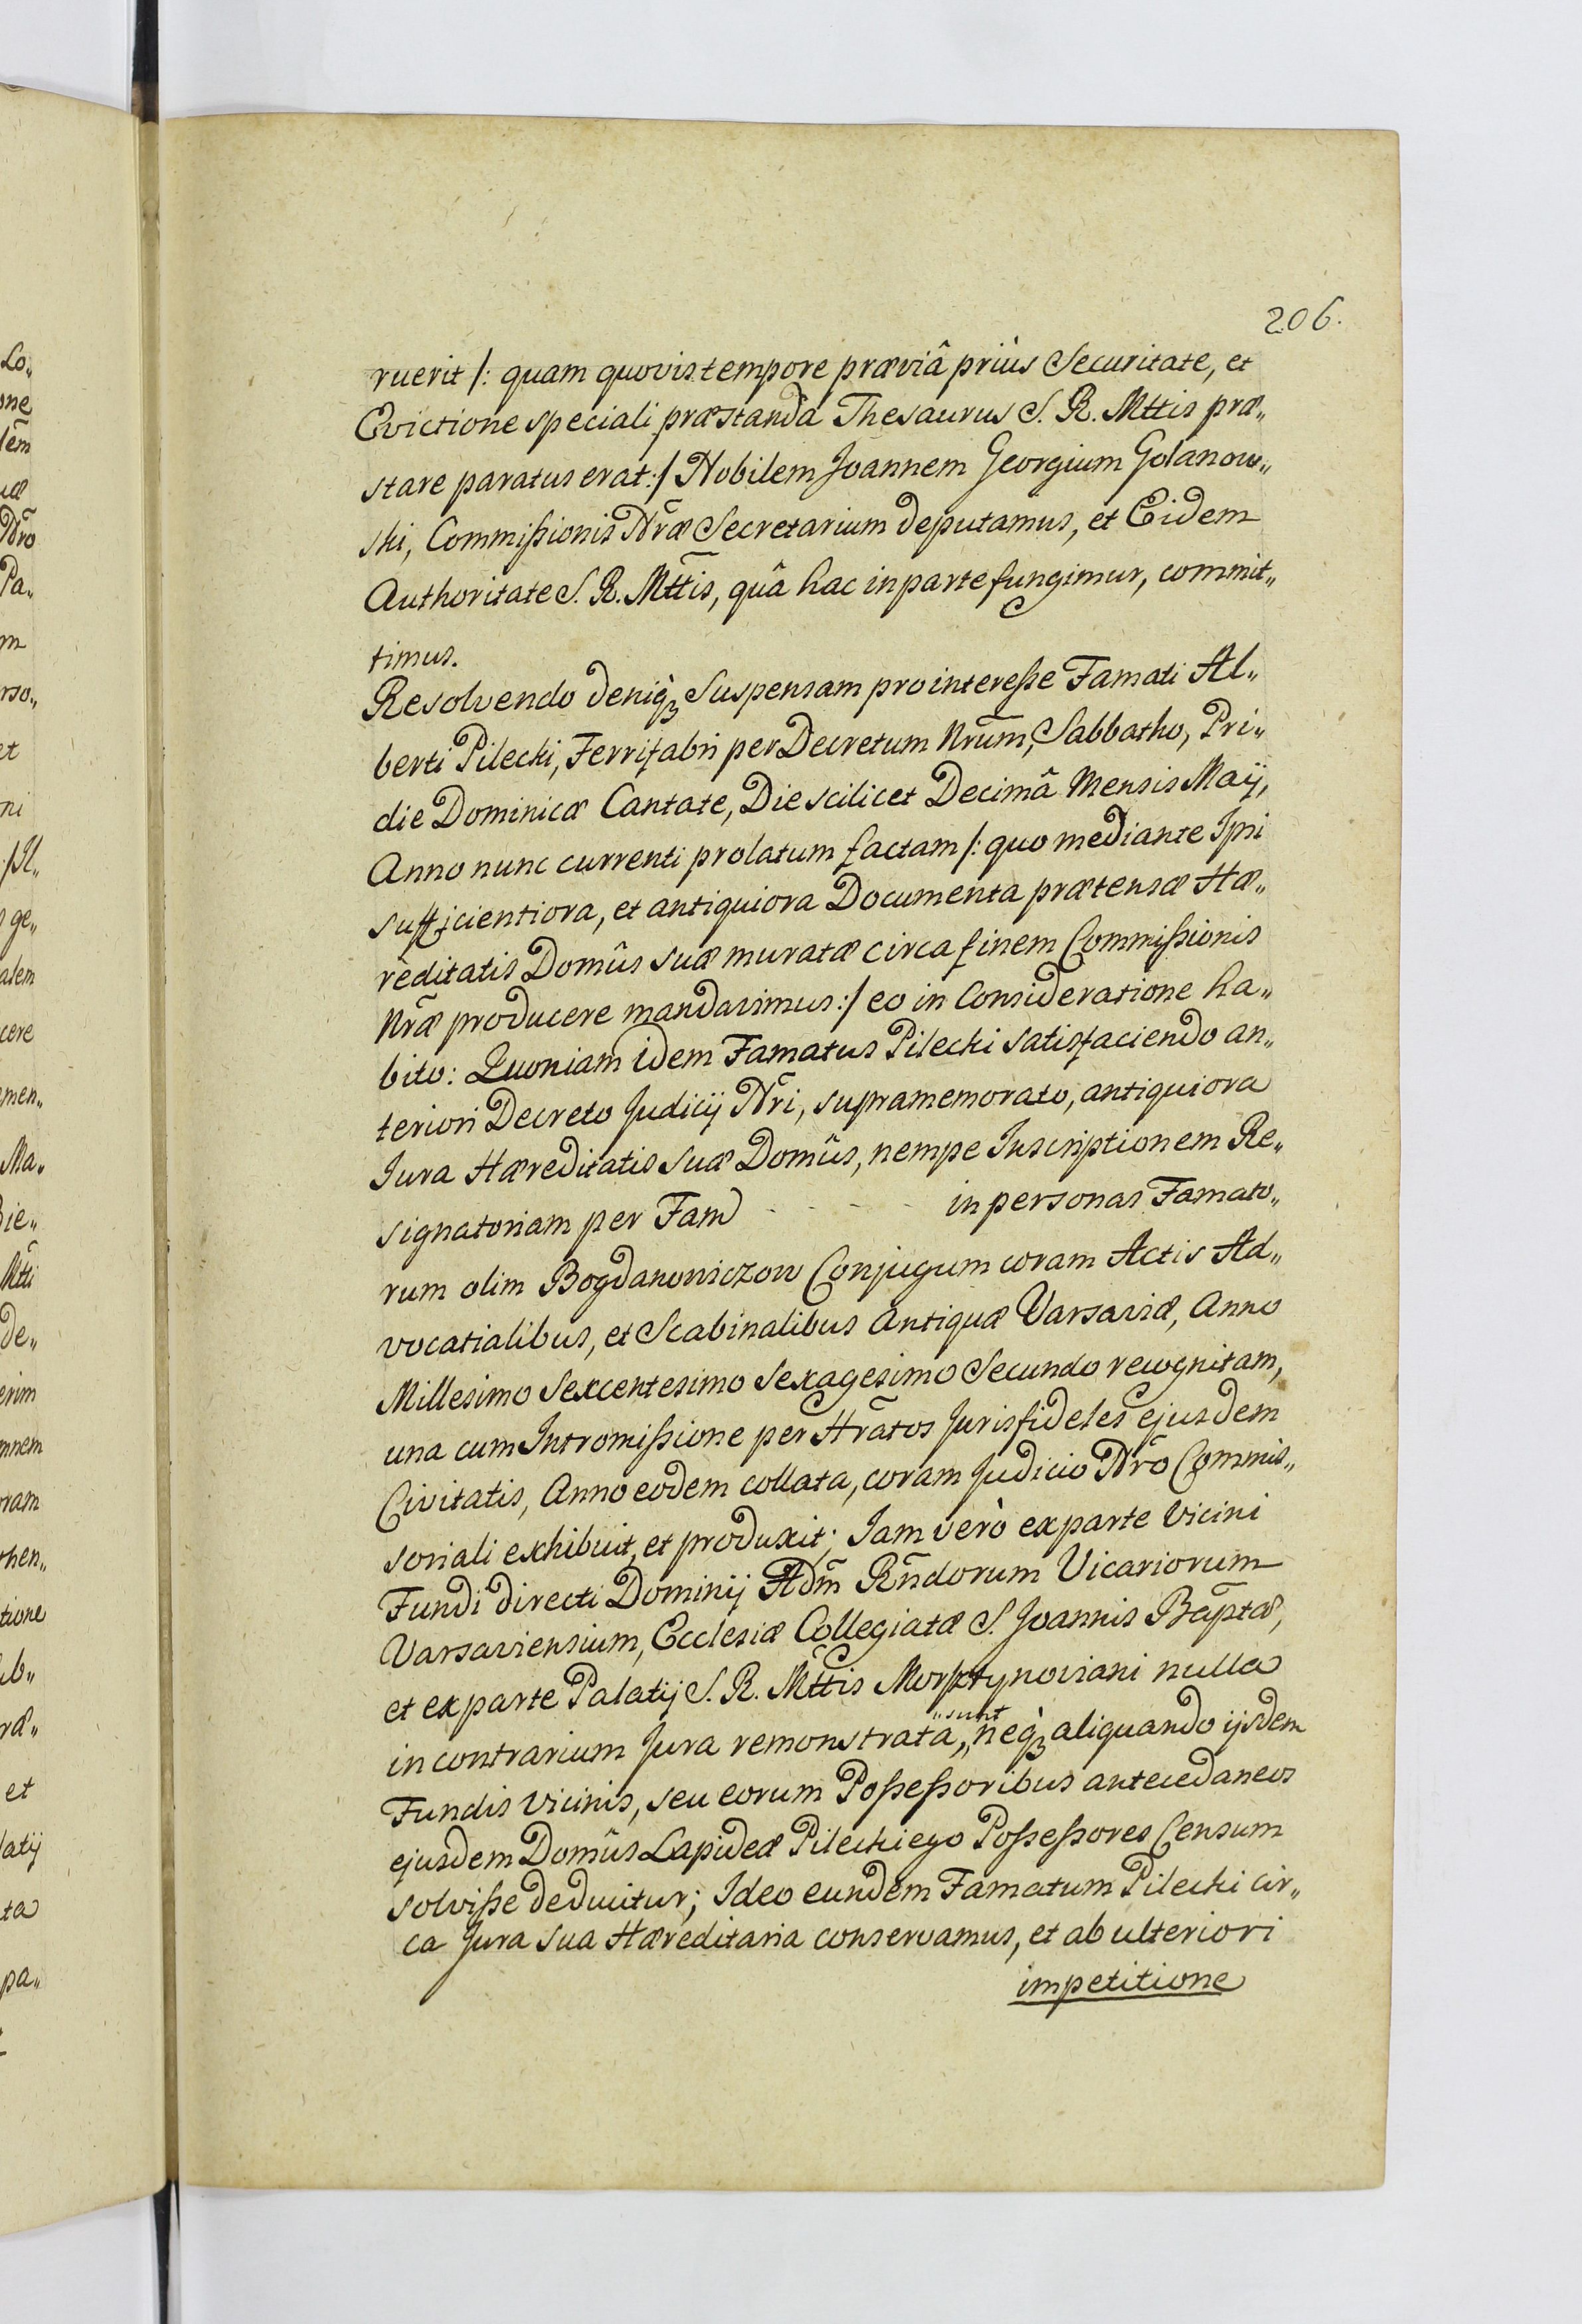 206.
ruerit /: quam quovis tempore præviâ priùs Securitate, et
Evictione speciali præstandâ Thesaurus S. R. Mttis præ„
stare paratus erat :/ Nobilem Joannem Georgium Golanow„
ski, Commißionis Nr̃æ Secretarium deputamus, et Eidem
Authoritate S. R. Mttis, quâ hac in parte fungimur, commit„
timus.
Resolvendo deniqꝫ Suspensam pro interesse Famati Al„
berti Pilecki, Ferrifabri per Decretum Nrũm, Sabbatho, Pri„
die Dominicæ Cantate, Die scilicet Decimâ Mensis Maÿ,
Anno nunc currenti prolatum factam /: quo mediante Ipsi
sufficientiora, et antiquiora Documenta prætensæ Hæ„
reditatis Domûs suæ muratæ circa finem Commißionis
Nr̃æ producere mandavimus :/ eo in Consideratione ha„
bito: Quoniam idem Famatus Pilecki satisfaciendo an„
teriori Decreto Judicij Nr̃i, supramemorato, antiquiora
Jura Hæreditatis suæ Domûs, nempe Inscriptionem Re„
signatoriam per Fam - - - - in personas Famato„
rum olim Bogdanowiczow Conjugum coram Actis Ad„
vocatialibus, et Scabinalibus Antiquæ Varsaviæ, Anno
Millesimo Sexcentesimo Sexagesimo Secundo recognitam,
una cum Intromißione per Hrãtos Jurisfideles ejusdem
Civitatis, Anno eodem collata, coram Judicio Nr̃o Commis„
soriali exhibuit, et produxit; Jam verò ex parte Vicini
Fundi directi Dominij Adm̃ Rñdorum Vicariorum
Varsaviensium, Ecclesiæ Collegiatæ S. Joannis Bapt̃æ,
et ex parte Palatij S. R. Mttis Morsztynoviani nulla
in contrarium Jura remonstrata „sunt„ neqꝫ aliquando ijsdem
Fundis vicinis, seu eorum Poßeßoribus antecedaneos
ejusdem Domûs Lapideæ Pileckiego Poßeßores Censum
solviße deducitur; Ideo eundem Famatum Pilecki cir„
ca Jura sua Hæreditaria conservamus, et ab ulteriori
impetitione